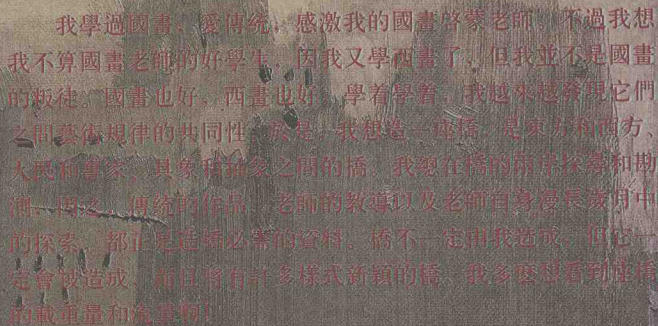 我學過國畫，愛傳統，感激我的國畫啓蒙老師。不過我想
我不算國畫老師的好學生，因我又學西畫了，但我並不是國畫
的叛徒。國畫也好，西畫也好，學着學着，我越來越發現它們
之間藝術規律的共同性。於是，我想造一座橋，是東方和西方、
人民和畫家、具象和抽象之間的橋。我總在橋的兩岸探尋和勘
測，因之，傳統的作品、老師的教導以及老師自身漫長歲月中
的探索，都正是造橋必需的資料。橋不一定由我造成，但它一
定會被造成，而且將有許多樣式新穎的橋，我多麼想看到這橋
的載重量和流量啊！